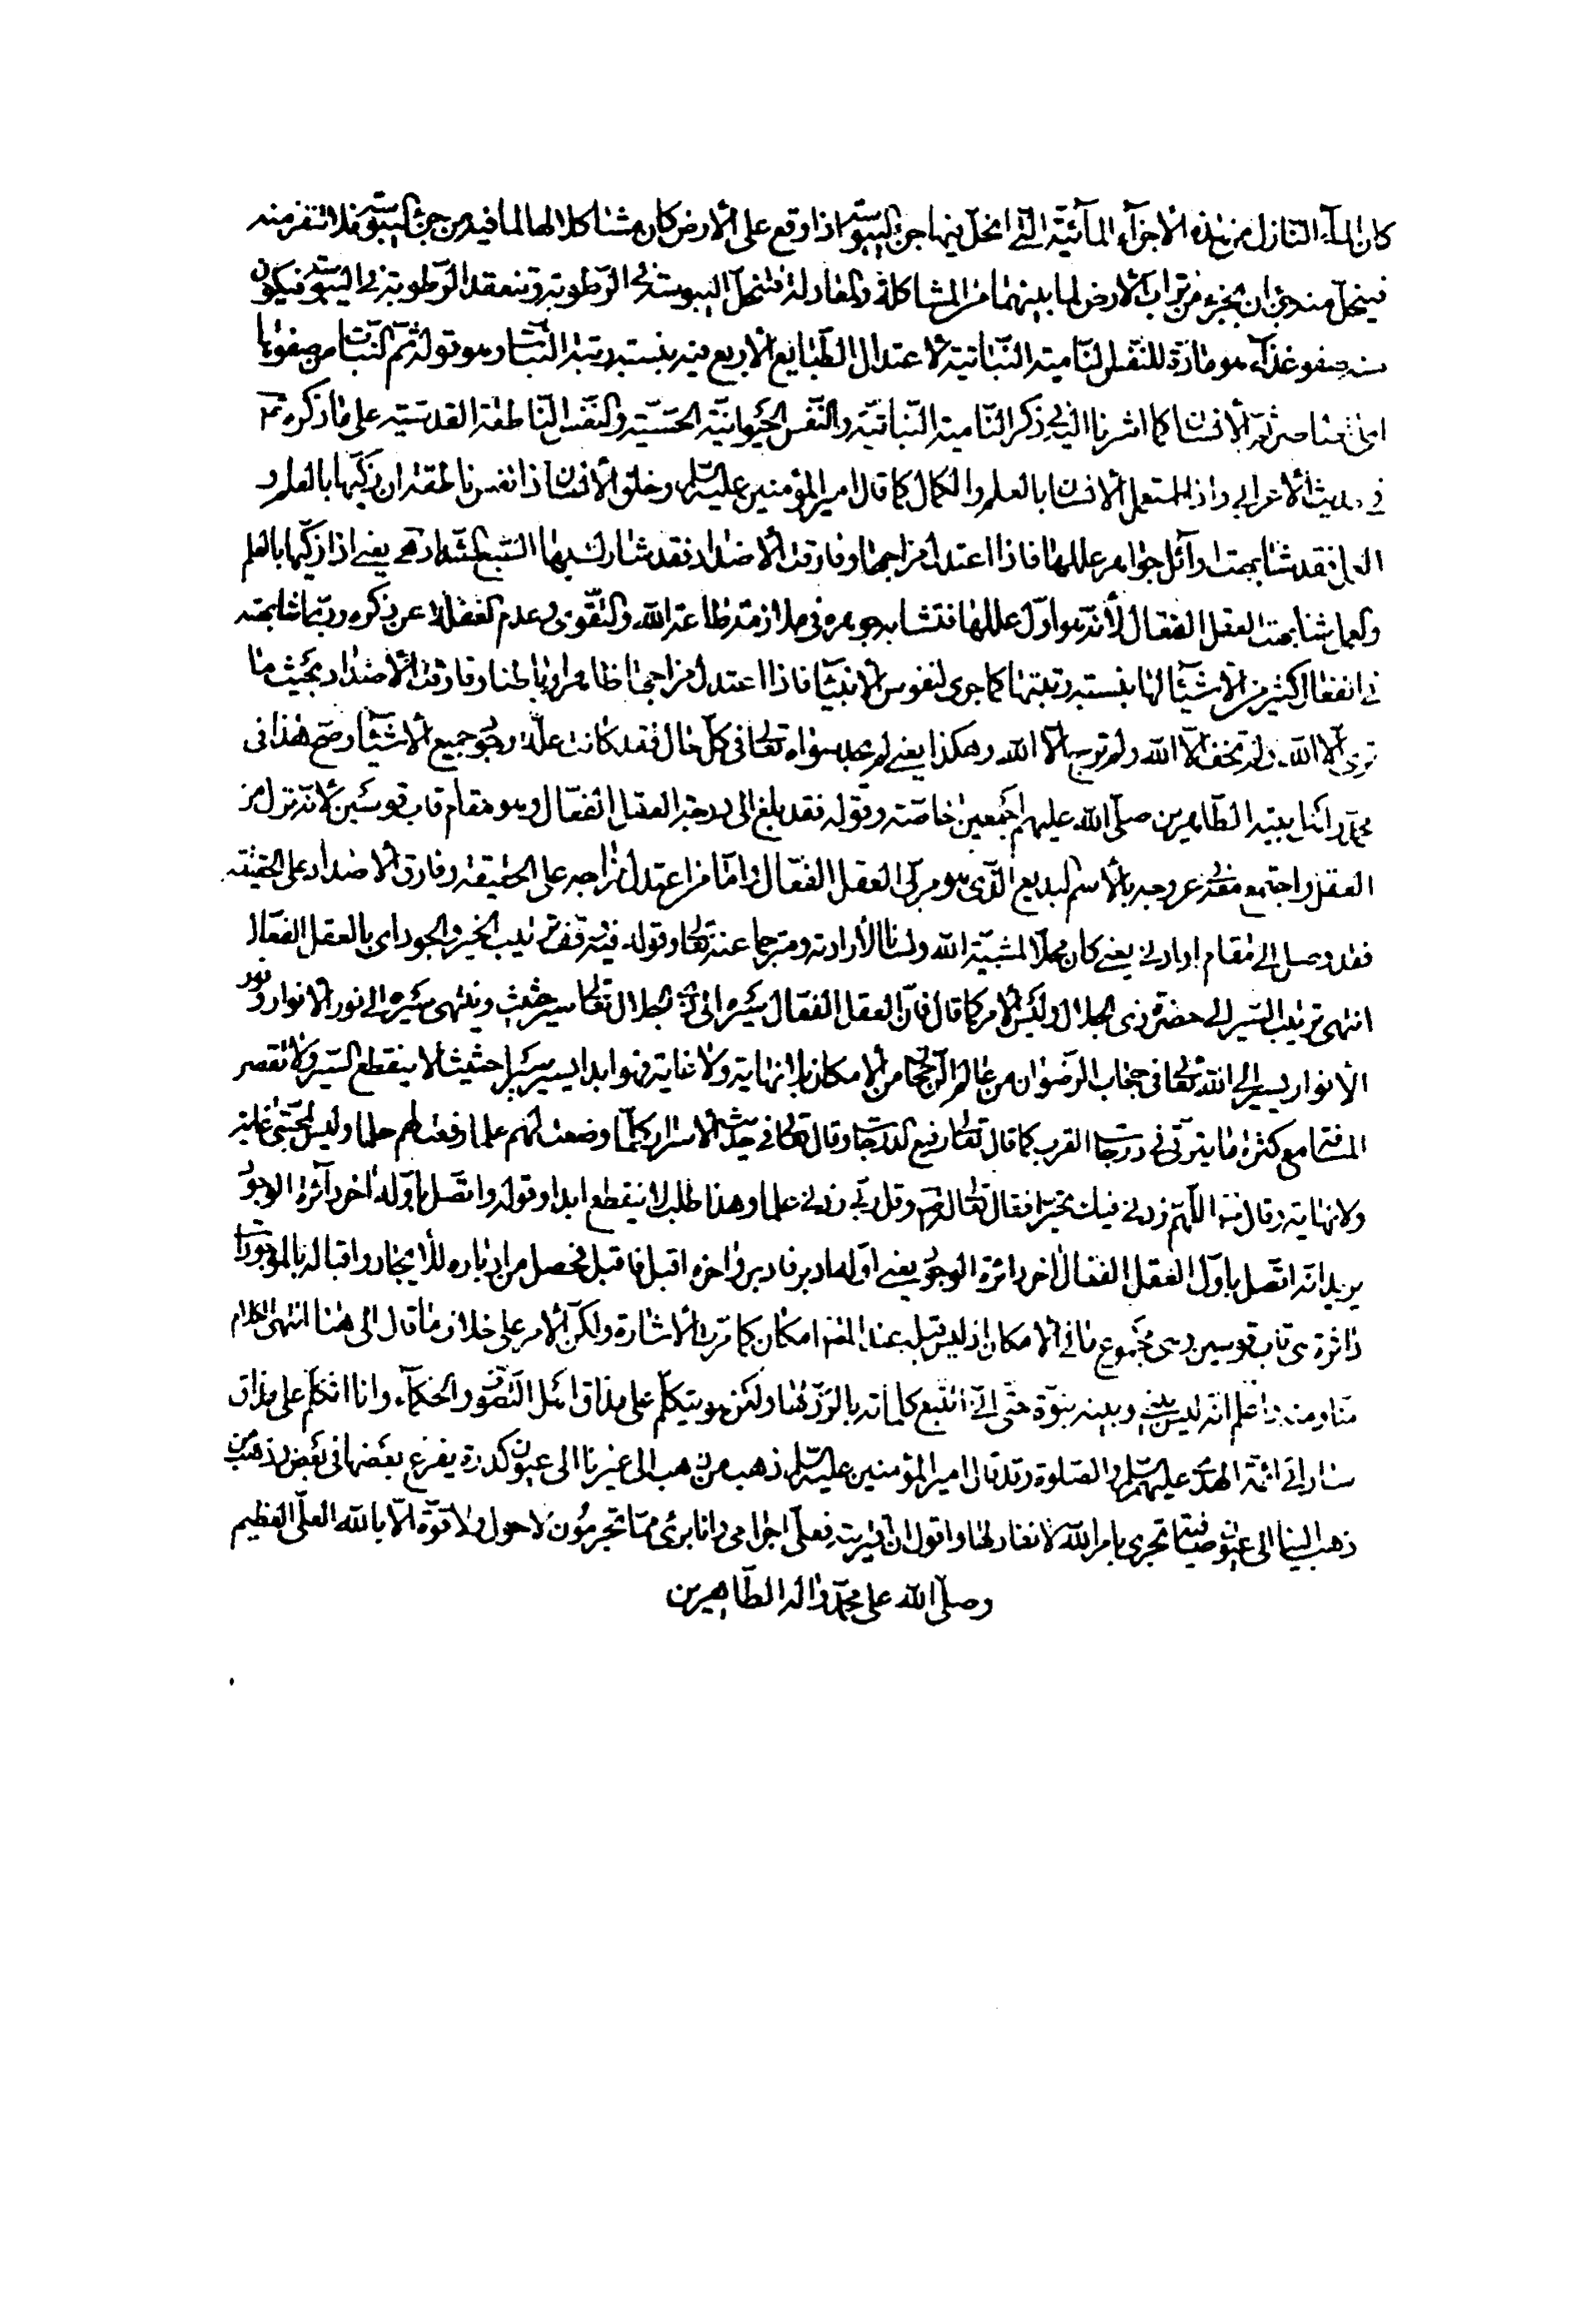 كان المآء النازل من هذه الاجزآء المآئيّة الّتى انحلّ فيها جزء اليبوسة اذا وقع على الأرض كان مشاكلا لها لما فيه من جزء اليبوسة فلا تنفر منه
فينحلّ منه جزءان بجزء من تراب الأرض لما بينهما من المشاكلة والمعادلة فتنحلّ اليبوسة فى الرّطوبة وتنعقد الرّطوبة فى اليبوسة فيكون
منه صفو غذآء هو مادّة للنّفس النّامية النّباتيّة لاعتدال الطّبايع الأربع فيه بنسبة رتبة النّبات وهو قوله ثمّ النّبات من صفوها
اى العناصر ثم الأنسان كما اشرنا اليه فى ذكر النّامية النّباتيّة والنّفس الحيوانيّة الحسّيّة والنّفس النّاطقة القدسيّة على ما ذكره
فى حديث الأعرابى واذا استعمل الأنسان بالعلم والكمال كما قال امير المؤمنين عليه السّلم وخلق الأنسان ذا نفس ناطقة ان زكّيها بالعلم و
العمل فقد شابهت اوآئل جواهر عللها فاذا اعتدل مزاجها وفارقت الأضداد فقد شارك بها السّبع الشّداد هـ يعنى اذا زكّيها بالعلم
والعمل شابهت العقل الفعّال لأنّه هو اوّل عللها فتشابه جوهره فى ملازمة طاعة الله والتّقوى وعدم الغفلة عن ذكره وربّما شابهته
فى انفعال كثير من الأشيآء لها بنسبة رتبتها كما جرى لنفوس الأنبيآء فاذا اعتدل مزاجها ظاهرا وباطنا وفارقت الأضداد بحيث ما
ترى الّا الله ولم تخف الّا الله ولم ترج الّا الله وهكذا يعنى لم تجد سواه تعالى فى كلّ حال فقد كانت علّة وجود جميع الأشيآء وصحّ هذا فى
محمّد واهل بيته الطّاهرين صلّى الله عليهم اجمعين خاصّة وقوله فقد بلغ الى درجة العقل الفعّال وهو مقام قاب قوسين لأنّه نزل من
العقل واجتمع معه فى عروجه بالأسم البديع الّذى هو مربّى العقل الفعّال وامّا من اعتدل مزاجه على الحقيقة وفارق الأضداد على الحقيقة
فقد وصل الى مقام او ادنى يعنى كان محلّا لمشيّة الله ولسانا لأرادته ومترجما عنه تعالى وقوله فيه فقف ترتيب الخير والجود اى بالعقل الفعّال
انتهى ترتيب السّير الى حضرة ذى الجلال وليس الأمر كما قال فانّ العقل الفعّال سيره الى ذى الجلال تعالى سير حثيث وينتهى سيره الى نور الأنوار ونور
الأنوار يسير الى الله تعالى فى حجاب الرّضوان من عالم الرّجحان من الأمكان بلا نهاية ولا غاية فهو ابدا يسير سيرا حثيثا لا ينقطع السّير ولا تقصر
المسافة مع كثرة ما يترقّى فى درجات القرب كما قال تعالى رفيع الدّرجات وقال تعالى فى حديث الأسرار كلّما وضعت لهم علما رفعت لهم حلما وليس لمحبّتى غاية
ولا نهاية وقال اللّهمّ زدنى فيك تحيّرا فقال تعالى وقل ربّ زدنى علما وهذا طلب لا ينقطع ابدا وقوله واتّصل باوّله اخر دآئرة الوجود
يريد انّه اتّصل باوّل العقل الفعّال اخر دائرة الوجود يعنى اوّله ادبر فادبر واخره اقبل فاقبل فحصل من ادباره للأيجاد واقباله بالموجودات
دائرة هى قاب قوسين وهى مجموع ما فى الأمكان اذ ليس قبله عند المصنّف امكان كما مرّت الأشارة ولكن الأمر على خلاف ما قال الى هنا انتهى الكلام
منّا ومنه واعلم انّه ليس بينى وبينه نبوّة حتّى انّى اتّبع كلماته بالرّدّ لها ولكن هو يتكلّم على مذاق اهل التّصوّف والحكمآء وانا اتكلّم على مذاق
ساداتى ائمّة الهدى عليهم السّلم والصّلوة وقد قال امير المؤمنين عليه السّلم ذهب من ذهب الى غيرنا الى عيون كدرة يفرغ بعضها فى بعض وذهب من
ذهب الينا الى عيون صافية تجرى بامر الله لا نفاد لها واقول ان افتريته فعلىّ اجرامى وانا برىء ممّا تجرمون لا حول ولا قوّة الّا بالله العلىّ العظيم
وصلّى الله على محمّد واله الطّاهرين